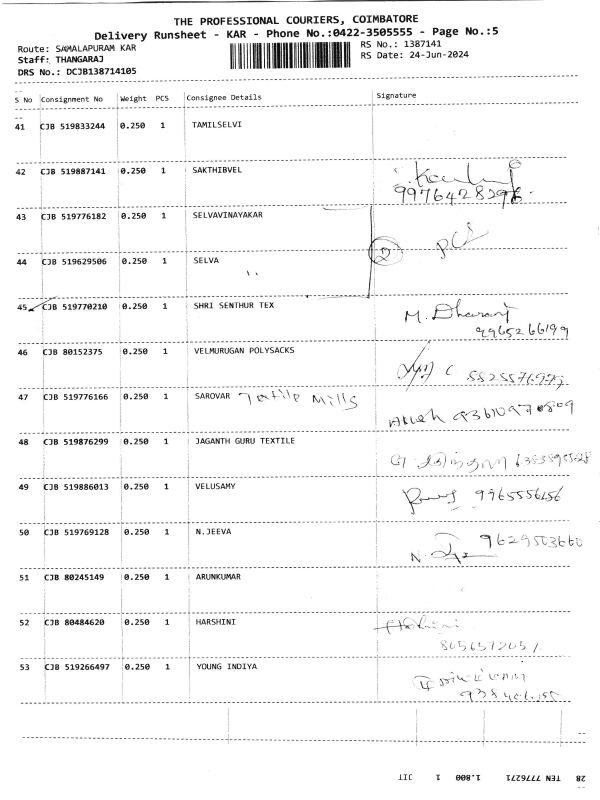 THE PROFESSIONAL COURIERS, COIMBATORE
Delivery Runsheet - KAR - Phone No.:0422-3505555 - Page No.:5
Route: SAMALAPURAM KAR
RS No.: 1387141
Staff: THANGARAJ
RS Date: 24-Jun-2024
DRS No.: DCJB138714105
S No Consignment No Weight PCS Consignee Details Signature
41 CJB 519833244 0.250 1 TAMILSELVI
42 CJB 519887141 0.250 1 SAKTHIBVEL
9976428296
43 CJB 519776182 0.250 1 SELVAVINAYAKAR
2 pcs
44 CJB 519629506 0.250 1 SELVA
45 CJB 519770210 0.250 1 SHRI SENTHUR TEX M. Dharani
9965266199
46 CJB 80152375 0.250 1 VELMURUGAN POLYSACKS
47 CJB 519776166 0.250 1 SAROVAR Textile Mills
48 CJB 519876299 0.250 1 JAGANTH GURU TEXTILE
49 CJB 519886013 0.250 1 VELUSAMY 9965556156
50 CJB 519769128 0.250 1 N.JEEVA 9629503660
N.
51 CJB 80245149 0.250 1 ARUNKUMAR
52 CJB 80484620 0.250 1 HARSHINI Harshini
53 CJB 519266497 0.250 1 YOUNG INDIYA
28 TEN 7776271 1.800 1 JIT